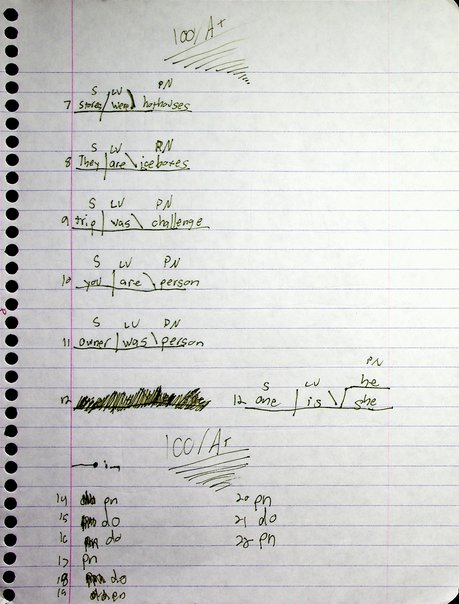 100/A+
S LV PN
7 Stores were hothouses
S LV PN
8 They are iceboxes
S LV PN
9 trip was challenge
S LV PN
10 you are person
S LV PN
11 owner was person
PN
S LV he
12 12 one is she
100/A+
14 pn 20 pn
15 do 21 do
16 do 22 pn
17 pn
18 do
19